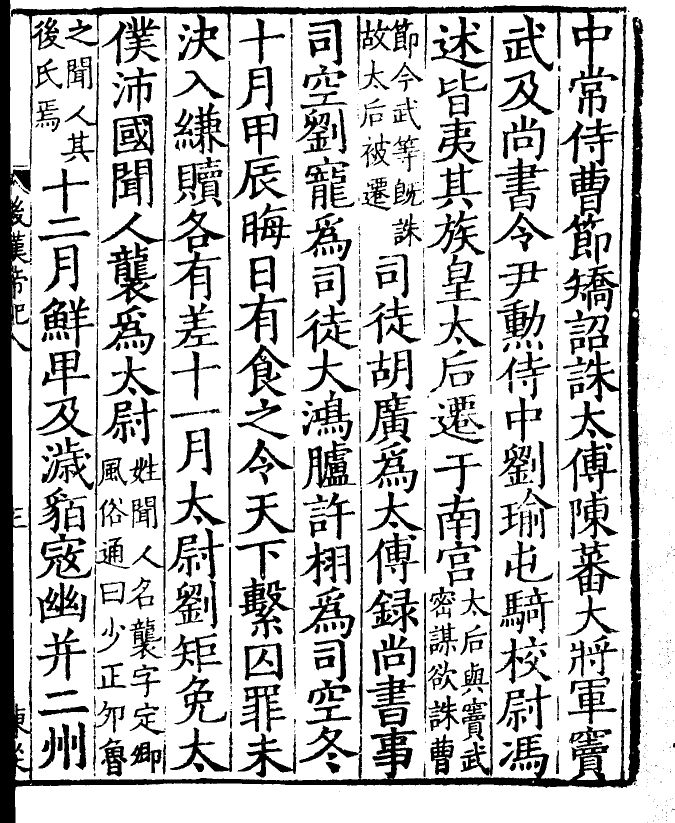 中常侍曹節矯詔誅太傅陳蕃大將軍竇
武及尚書令尹勲侍中劉瑜屯騎校尉馮
述皆夷其族皇太后遷于南宫太后與竇武密謀欲誅曹
節今武等旣誅故太后被遷司徒胡廣爲太傅録尚書事
司空劉寵爲司徒大鴻臚許栩爲司空冬
十月甲辰晦日有食之令天下繫囚罪未
決入縑贖各有差十一月太尉劉矩免太
僕沛國聞人襲爲太尉姓聞人名襲字定卿風俗通曰少正夘魯
之聞人其後氏焉十二月鮮甲及濊貊寇幽并二州
後漢帝紀八
三